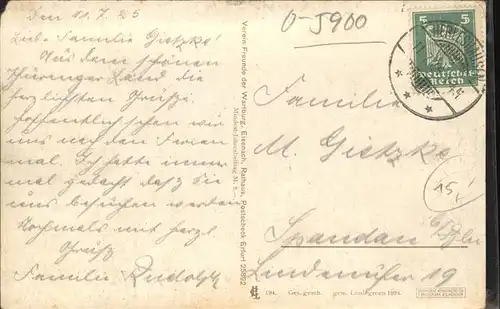 Den 11.7.25
Lieb. Familie Gietzke!
Aus dem schönen
Thüringer Land die
herzlichsten Grüße.
Hoffentlich sehen wir
uns nach den Ferien
mal. Ich hatte immer
mal gedacht daß Sie
uns besuchen werden
Nochmals mit herzl.
Gruß
Familie Rudolph
Verein Freunde der Wartburg, Eisenach, Rathaus, Postscheck Erfurt 25892
0-5900
5 5
Deutsches
Reich
Familie
M. Gietzke
15,-
Spandau b/Bln
Lindenufer 19
194. Ges. gesch. gem. Landgrem 1924.